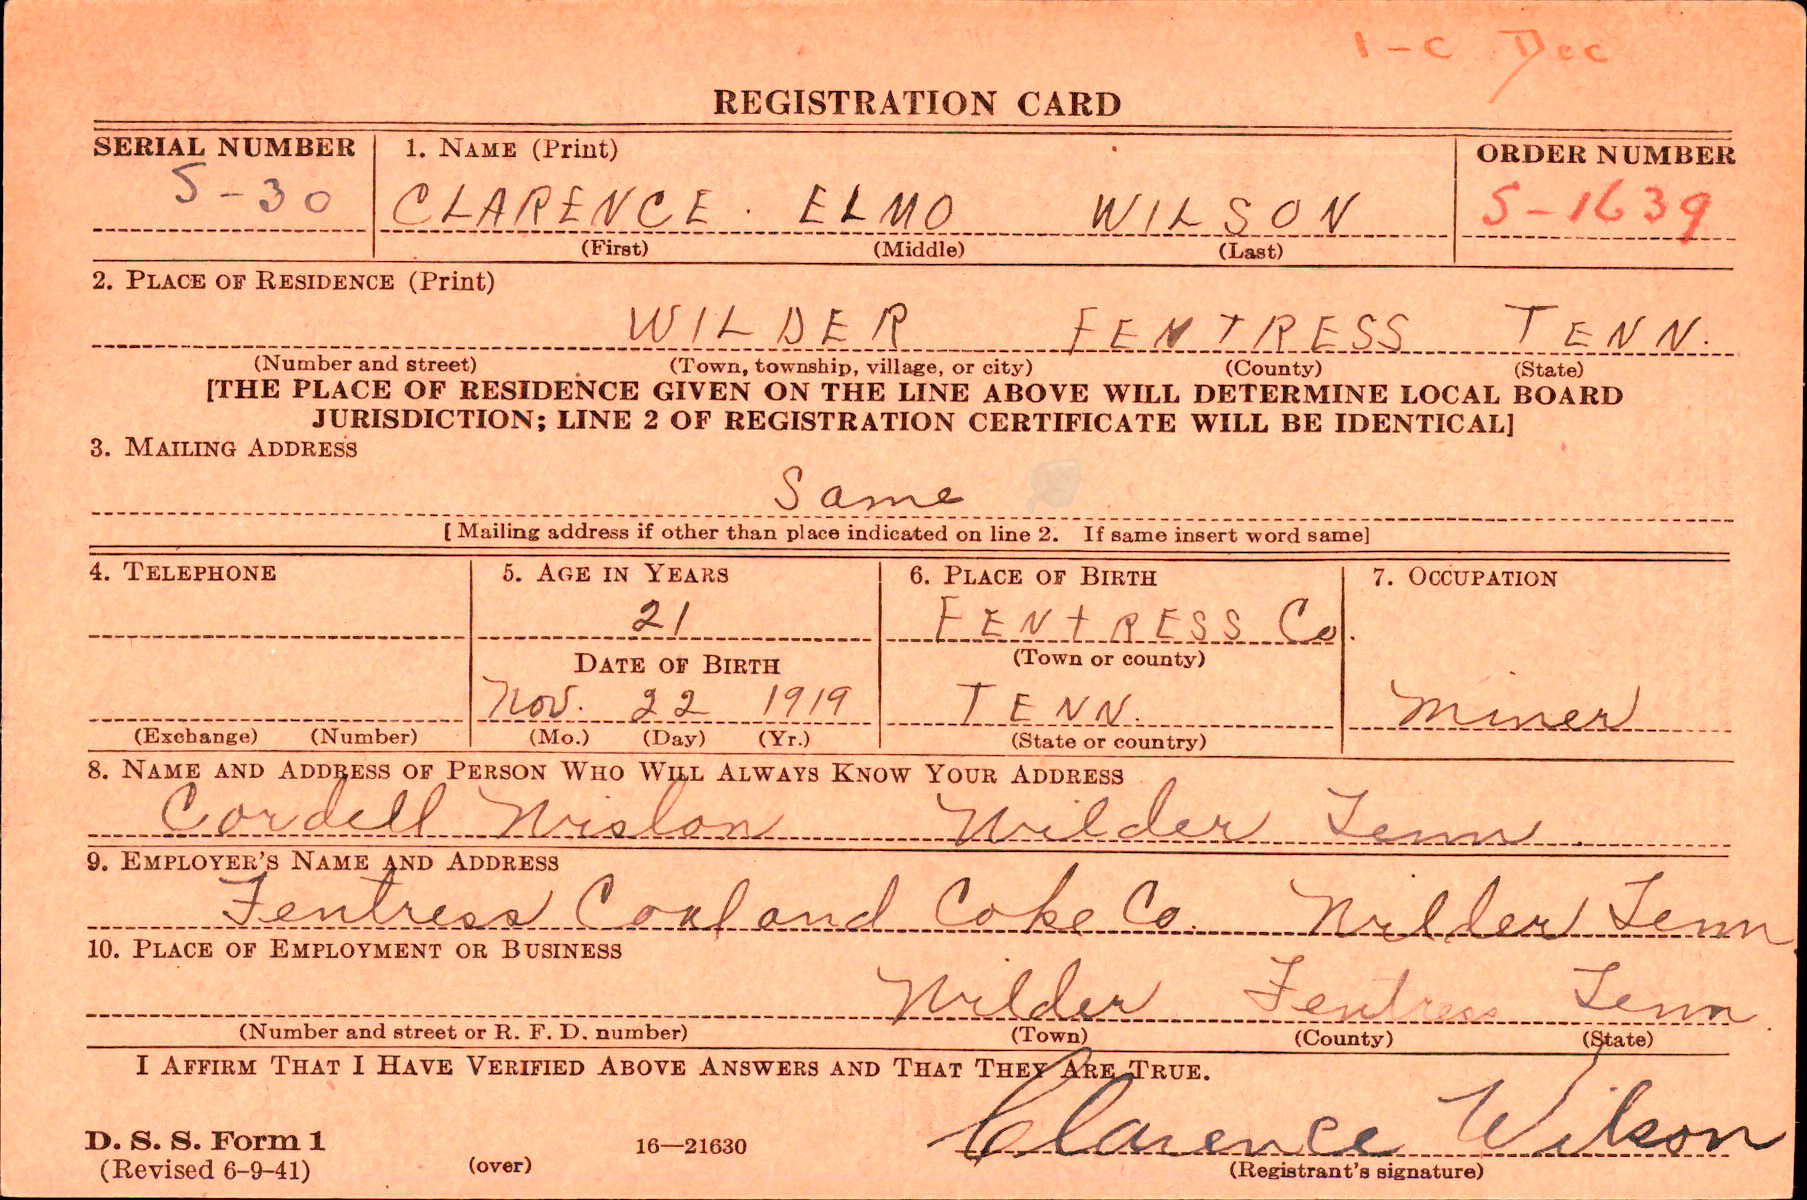 1-C Dec
REGISTRATION CARD
SERIAL NUMBER 1. NAME (Print) ORDER NUMBER
S-30 CLARENCE. ELMO WILSON S-1639
(First) (Middle) (Last)
2. PLACE OF RESIDENCE (Print)
WILDER FENTRESS TENN.
(Number and street) (Town, township, village, or city) (County) (State)
[THE PLACE OF RESIDENCE GIVEN ON THE LINE ABOVE WILL DETERMINE LOCAL BOARD
JURISDICTION; LINE 2 OF REGISTRATION CERTIFICATE WILL BE IDENTICAL]
3. MAILING ADDRESS
Same
[Mailing address if other than place indicated on line 2. If same insert word same]
4. TELEPHONE 5. AGE IN YEARS 6. PLACE OF BIRTH 7. OCCUPATION
21 FENTRESS Co.
DATE OF BIRTH (Town or county)
Nov. 22 1919 TENN. Miner
(Exchange) (Number) (Mo.) (Day) (Yr.) (State or country)
8. NAME AND ADDRESS OF PERSON WHO WILL ALWAYS KNOW YOUR ADDRESS
Cordell Wislon Wilder Tenn.
9. EMPLOYER'S NAME AND ADDRESS
Fentress Coal and Coke Co. Wilder Tenn.
10. PLACE OF EMPLOYMENT OR BUSINESS
Wilder Fentress Tenn.
(Number and street or R. F. D. number) (Town) (County) (State)
I AFFIRM THAT I HAVE VERIFIED ABOVE ANSWERS AND THAT THEY ARE TRUE.
Clarence Wilson
D. S. S. Form 1 16—21630
(Revised 6-9-41) (over) (Registrant's signature)